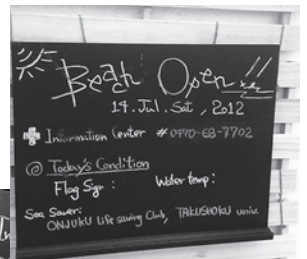 Beach Open!!
14. Jul. Sat, 2012
Information Center # 0470-68-7702
◎ Today's Condition
Flag Sign : Water temp :
Sea Saver:
ONJUKU Life saving Club, TAKUSHOKU univ.